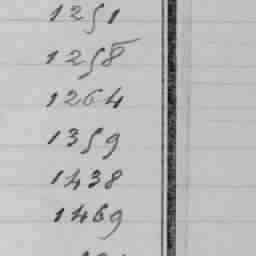 1251
1258
1264
1359
1438
1469